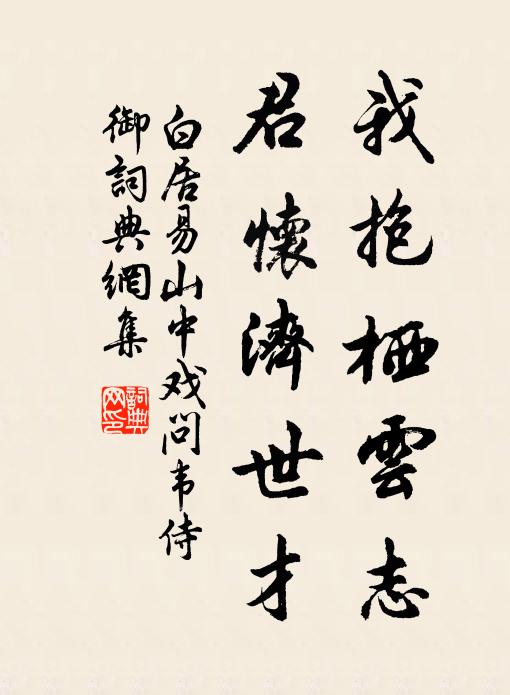 我抱栖雲志
君懷濟世才
白居易山中戏问韦侍
御詞典網集
詞典
网印